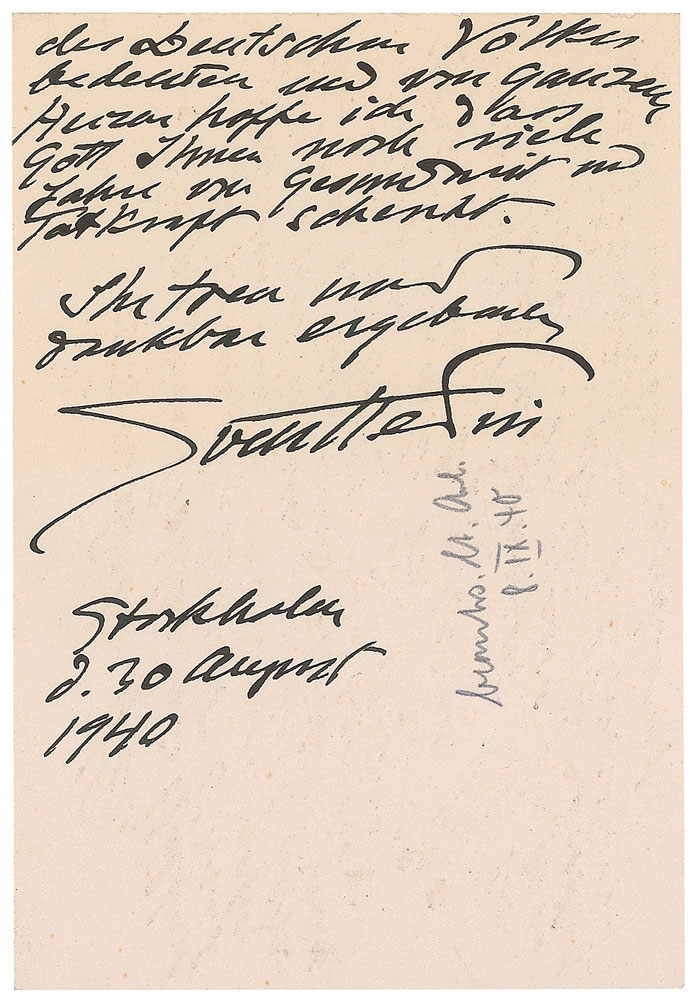 des Deutschen Volkes
bedeuten und von ganzem
Herzen hoffe ich dass
Gott Ihnen noch viele
Jahre von Gesundheit und
Tatkraft schenkt.
Ihr treu und
dankbar ergebener
Sven Hedin
Stockholm
d. 30 August
1940
8.IX.40